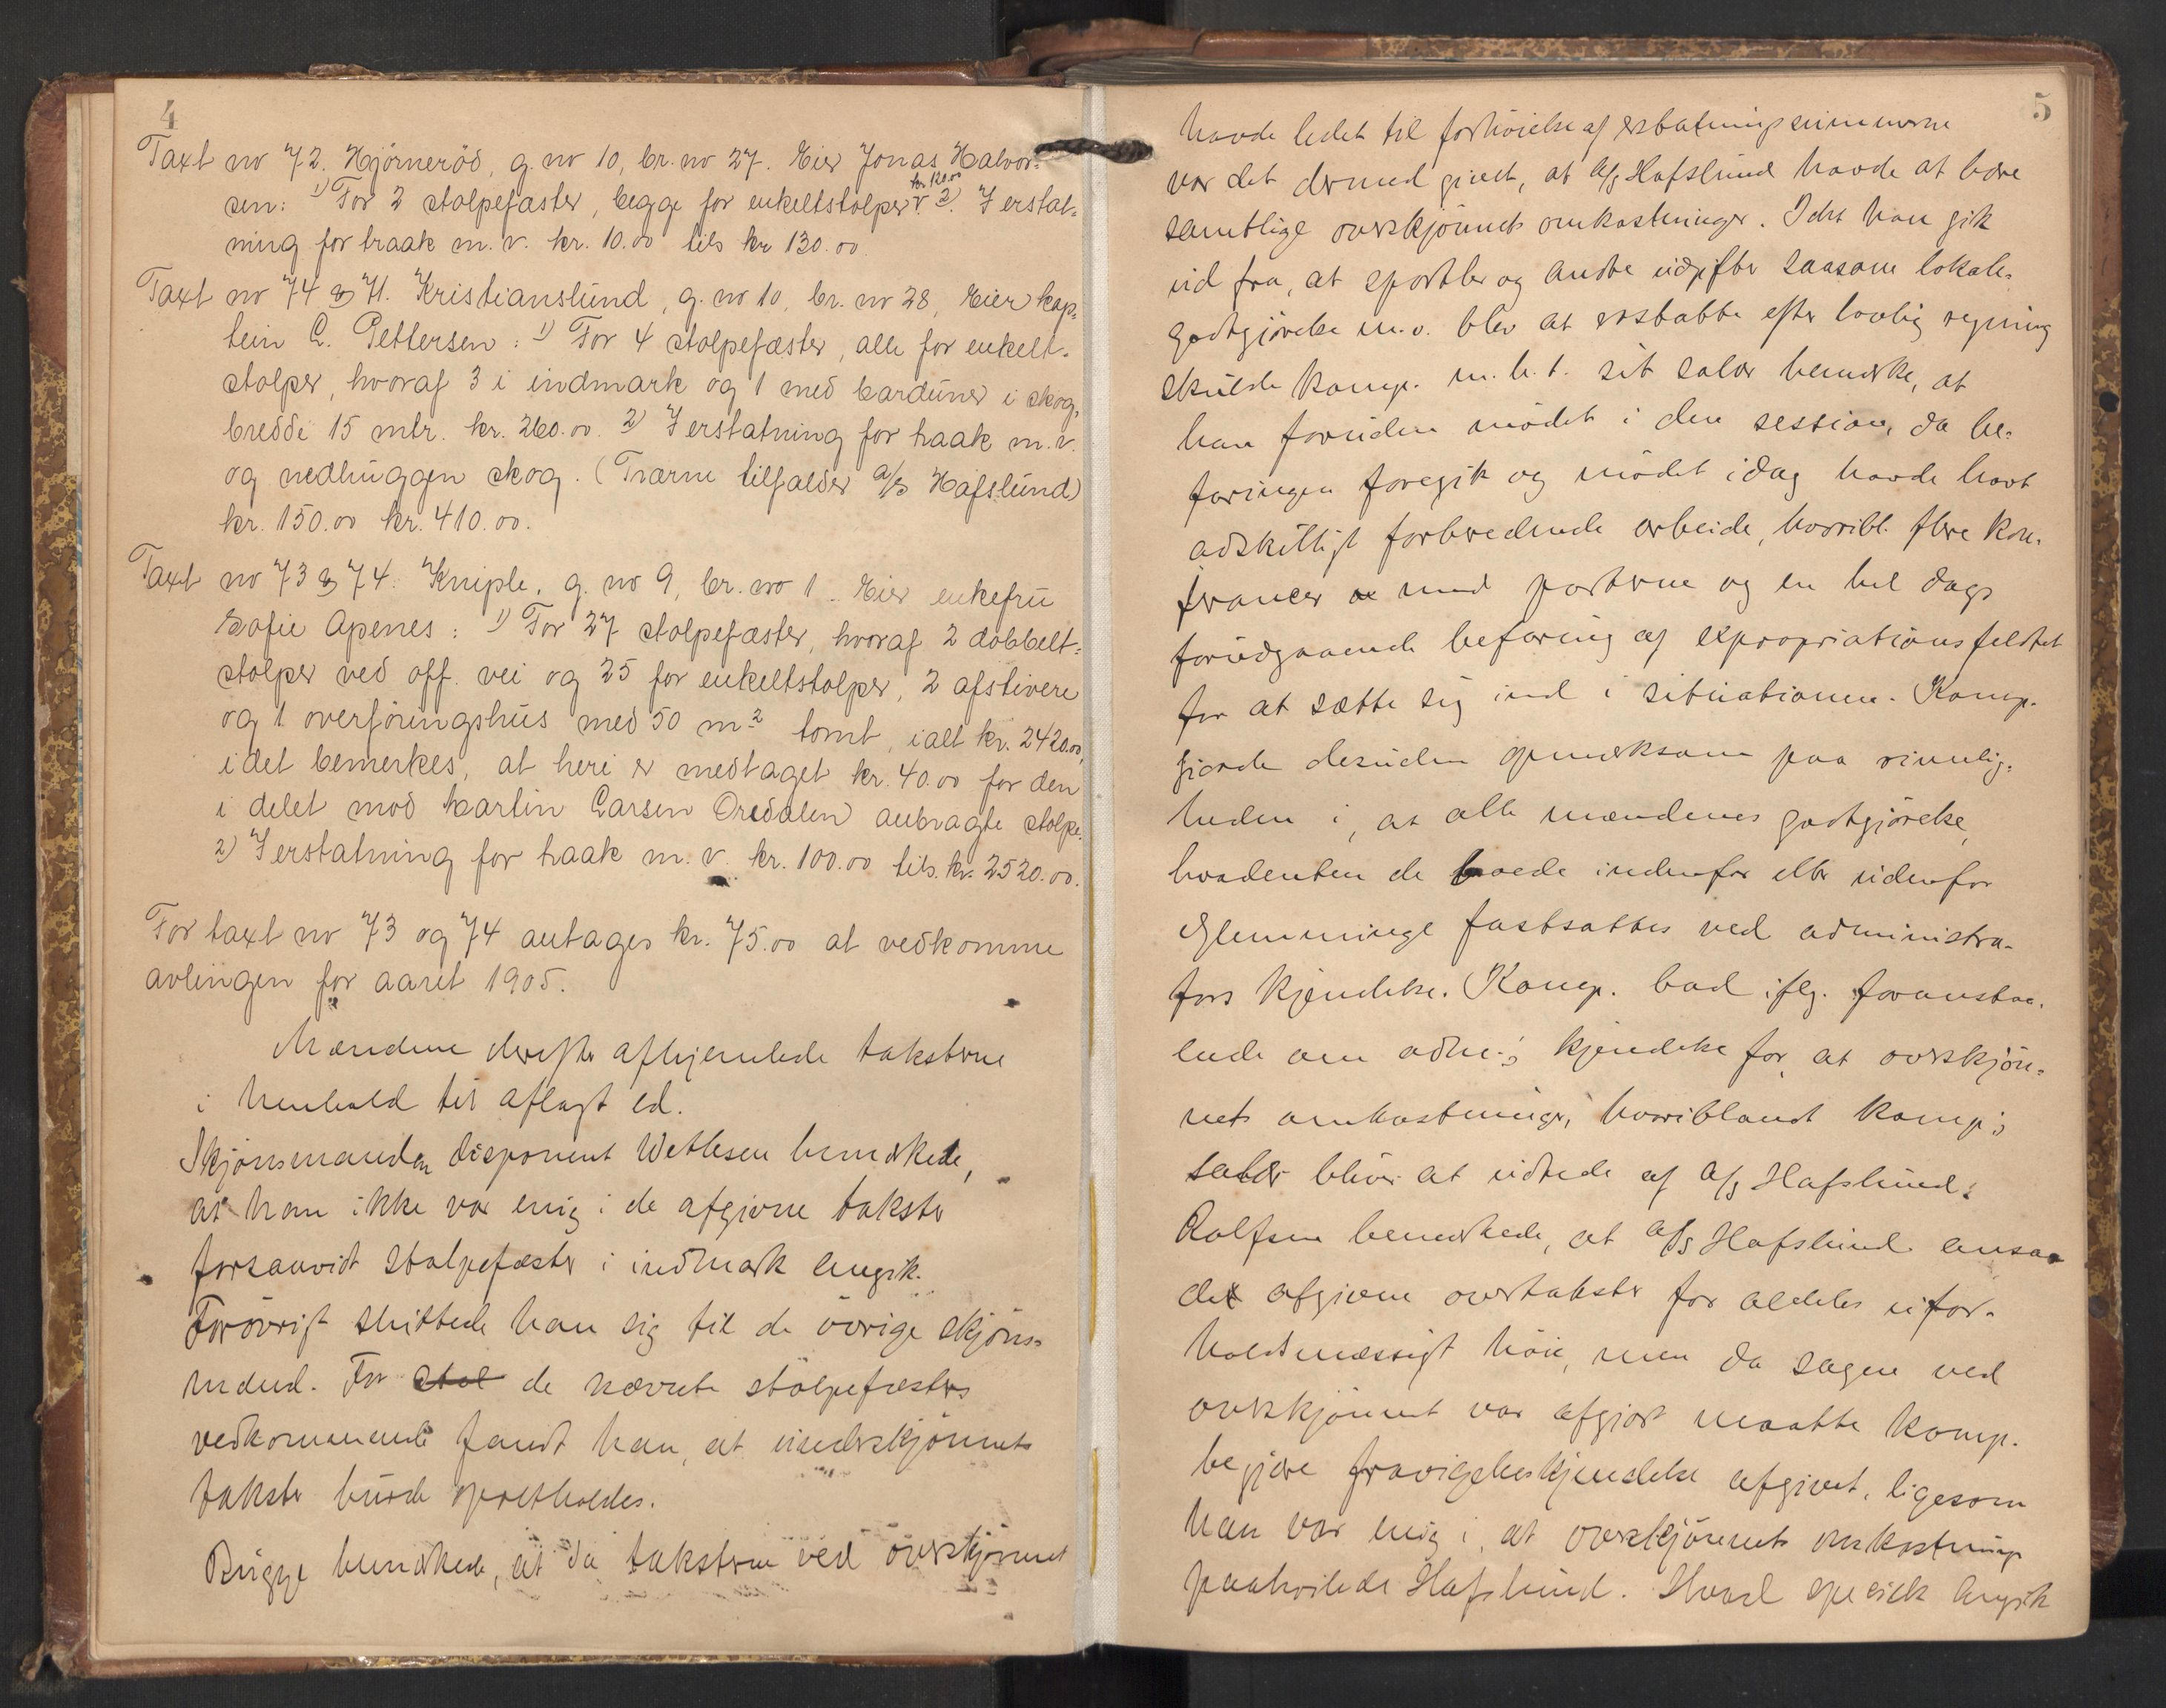 4
Taxt no 72. Hjørnerød, g. no 10, br. no 27. Eier Jonas Halvor-
kr. 120.00
sen: 1) For 2 stolpefæster, begge for enkeltstolper v. 2). I erstat-
ning for hraak m. v. kr. 10.00 tils kr 130.00
Taxt no 74 & 71. Kristianslund, g. no 10, br. no 28, Eier kap-
tein C. Pettersen: 1) For 4 stolpefæster, alle for enkelt-
stolper, hvoraf 3 i indmark og 1 med barduner i skog,
bredde 15 mtr. kr. 260.00. 2) I erstatning for hraak m. v.
og nedhuggen skog. (Trærne tilfalder A/S Hafslund)
kr. 150.00 kr. 410.00.
Taxt no 73 & 74. Kniple, g. no 9, br. no 1. Eier enkefru
Sofie Apenes: 1) For 27 stolpefæster, hvoraf 2 dobbelt-
stolper ved off. vei og 25 for enkeltstolper, 2 afstivere
og 1 overføringshus med 50 m2 tomt, ialt kr. 2420.00,
idet bemerkes, at heri er medtaget kr. 40.00 for den
i delet mod Martin Larsen Oredalen anbragte stolpe.
2) I erstatning for hraak m. v. kr. 100.00 tils. kr. 2520.00.
For taxt no 73 og 74 antages kr. 75.00 at vedkomme
avlingen for aaret 1905.
Mændene derefter afhjemlede taksterne
i henhold til aflagt ed.
Skjønsmanden disponent Wetlesen bemerkede,
at han ikke var enig i de afgivne takster
forsaavidt stolpefæster i indmark angik.
Forøvrigt sluttede han sig til de øvrige skjøns-
mænd. For stol de nævnte stolpefæsters
vedkommende fandt han, at underskjønnets
takster burde opretholdes.
Bugge bemerkede, at da taksterne ved overskjønnet
5
havde ledet til forhøielse af erstatningssummerne
var det dermed givet, at A/S Hafslund havde at bære
samtlige overskjønnets omkostninger. Idet han gik
ud fra, at sportler og andre udgifter saasom lokale-
godtgjørelse m.v. blev at erstatte efter lovlig regning
skulde komp. m. h. t. sit salær bemerke, at
han foruden mødet i den session, da be-
faringen foregik og mødet idag havde havt
adskilligt forberedende arbeide, hvoribl. flere kon-
ferancer med parterne og en hel dags
forudgaaende befaring af expropriationsfeltet
for at sætte sig ind i situationen. Komp.
gjorde desuden opmerksom paa rimelig-
heden i, at alle mændenes godtgjørelse,
hvadenten de boede indenfor eller udenfor
Glemminge fastsattes ved administra-
tors kjendelse. Komp. bad iflg. foranstaa-
ende om adm.'s kjendelse for, at overskjøn-
nets omkostninger, hvoriblandt komp.'s
salær bliver at udrede af A/S Hafslund.
Rolfsen bemerkede, at A/S Hafslund ansaa
de afgivne overtakster for aldeles ufor-
holdsmæssigt høie, men da sagen ved
overskjønnet var afgjort maatte komp.
begjære fravigelseskjendelse afgivet, ligesom
han var enig i, at overskjønnets omkostninger
paahvilede Hafslund. Hvad specielt angik